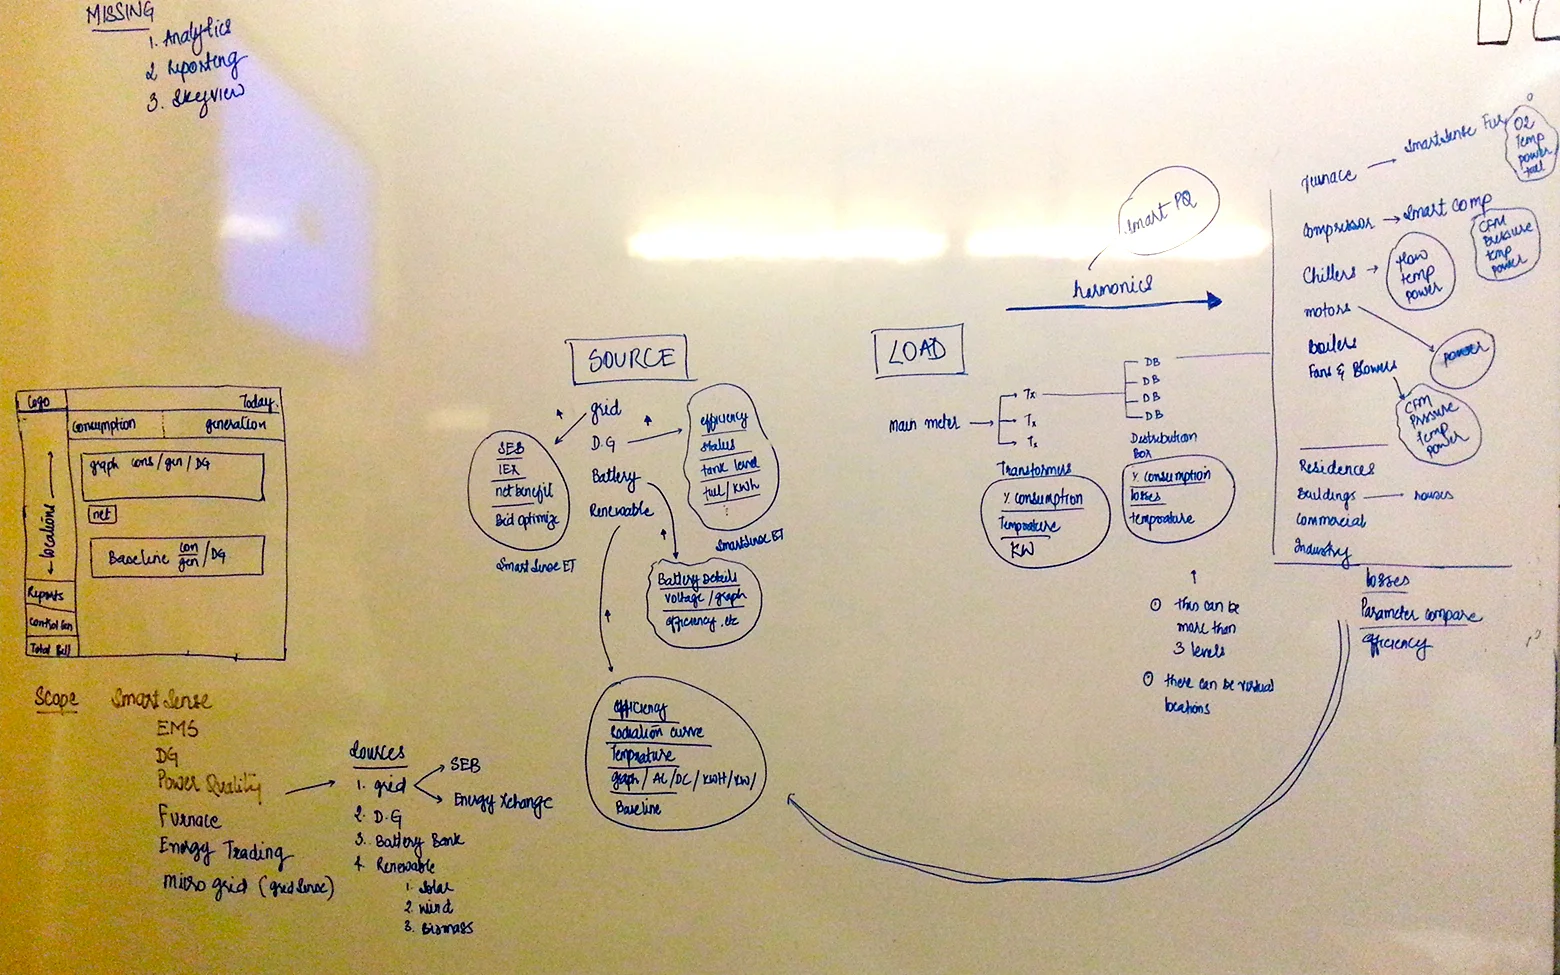 MISSING
1. Analytics
2 Reporting
3. Skyview
Logo
Today.
Consumption
generation
graph cons/gen/DG
net
Baseline con/gen/DG
← locations →
Reports
Total Bill
Scope
Smart Sense
EMS
DG
Power Quality
Furnace
Energy Trading
micro grid (gridSense)
Sources
1. grid
SEB
Energy Xchange
2. D.G
3. Battery Bank
4. Renewable
1. Solar
2. Wind
3. Biomass
SOURCE
grid
D.G
Battery
Renewable
SEB
IEX
net benefit
Bid optimize
SmartSense ET
efficiency
status
tank level
fuel/KWh
SmartSense ET
Battery Details
voltage/graph
efficiency .etc
efficiency
Radiation curve
Temprature
graph/AC/DC/KWH/KW/
Baseline
LOAD
main meter
Tx
Tx
Tx
Transformers
% consumption
Temprature
KW
smart PQ
harmonics
DB
DB
DB
DB
Distribution
Box
% consumption
losses
temprature
this can be
more than
3 levels
there can be virtual
locations
furnace → SmartSense Fur
O2
Temp
power
fuel
Compressor → Smart Comp
CFM
Pressure
temp
power
Chillers →
flow
temp
power
motors
power
Boilers
Fans & Blowers
CFM
Pressure
Temp
power
Residences
Buildings
Commercial
Industry
losses
Parameter compare
efficiency